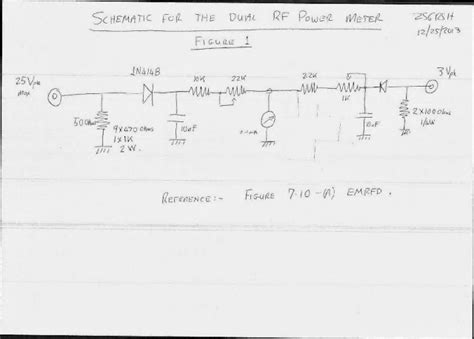 SCHEMATIC FOR THE DUAL RF POWER METER
12/25/2013
FIGURE 1
25Vpk
max
1N4148
10K
22K
22K
1K
3Vpk
50 Ohms
9x470 Ohms
1x1K
2W
10nF
10nF
2x100 Ohms
1/4W
REFERENCE:- FIGURE 7.10-(A) EMRFD.